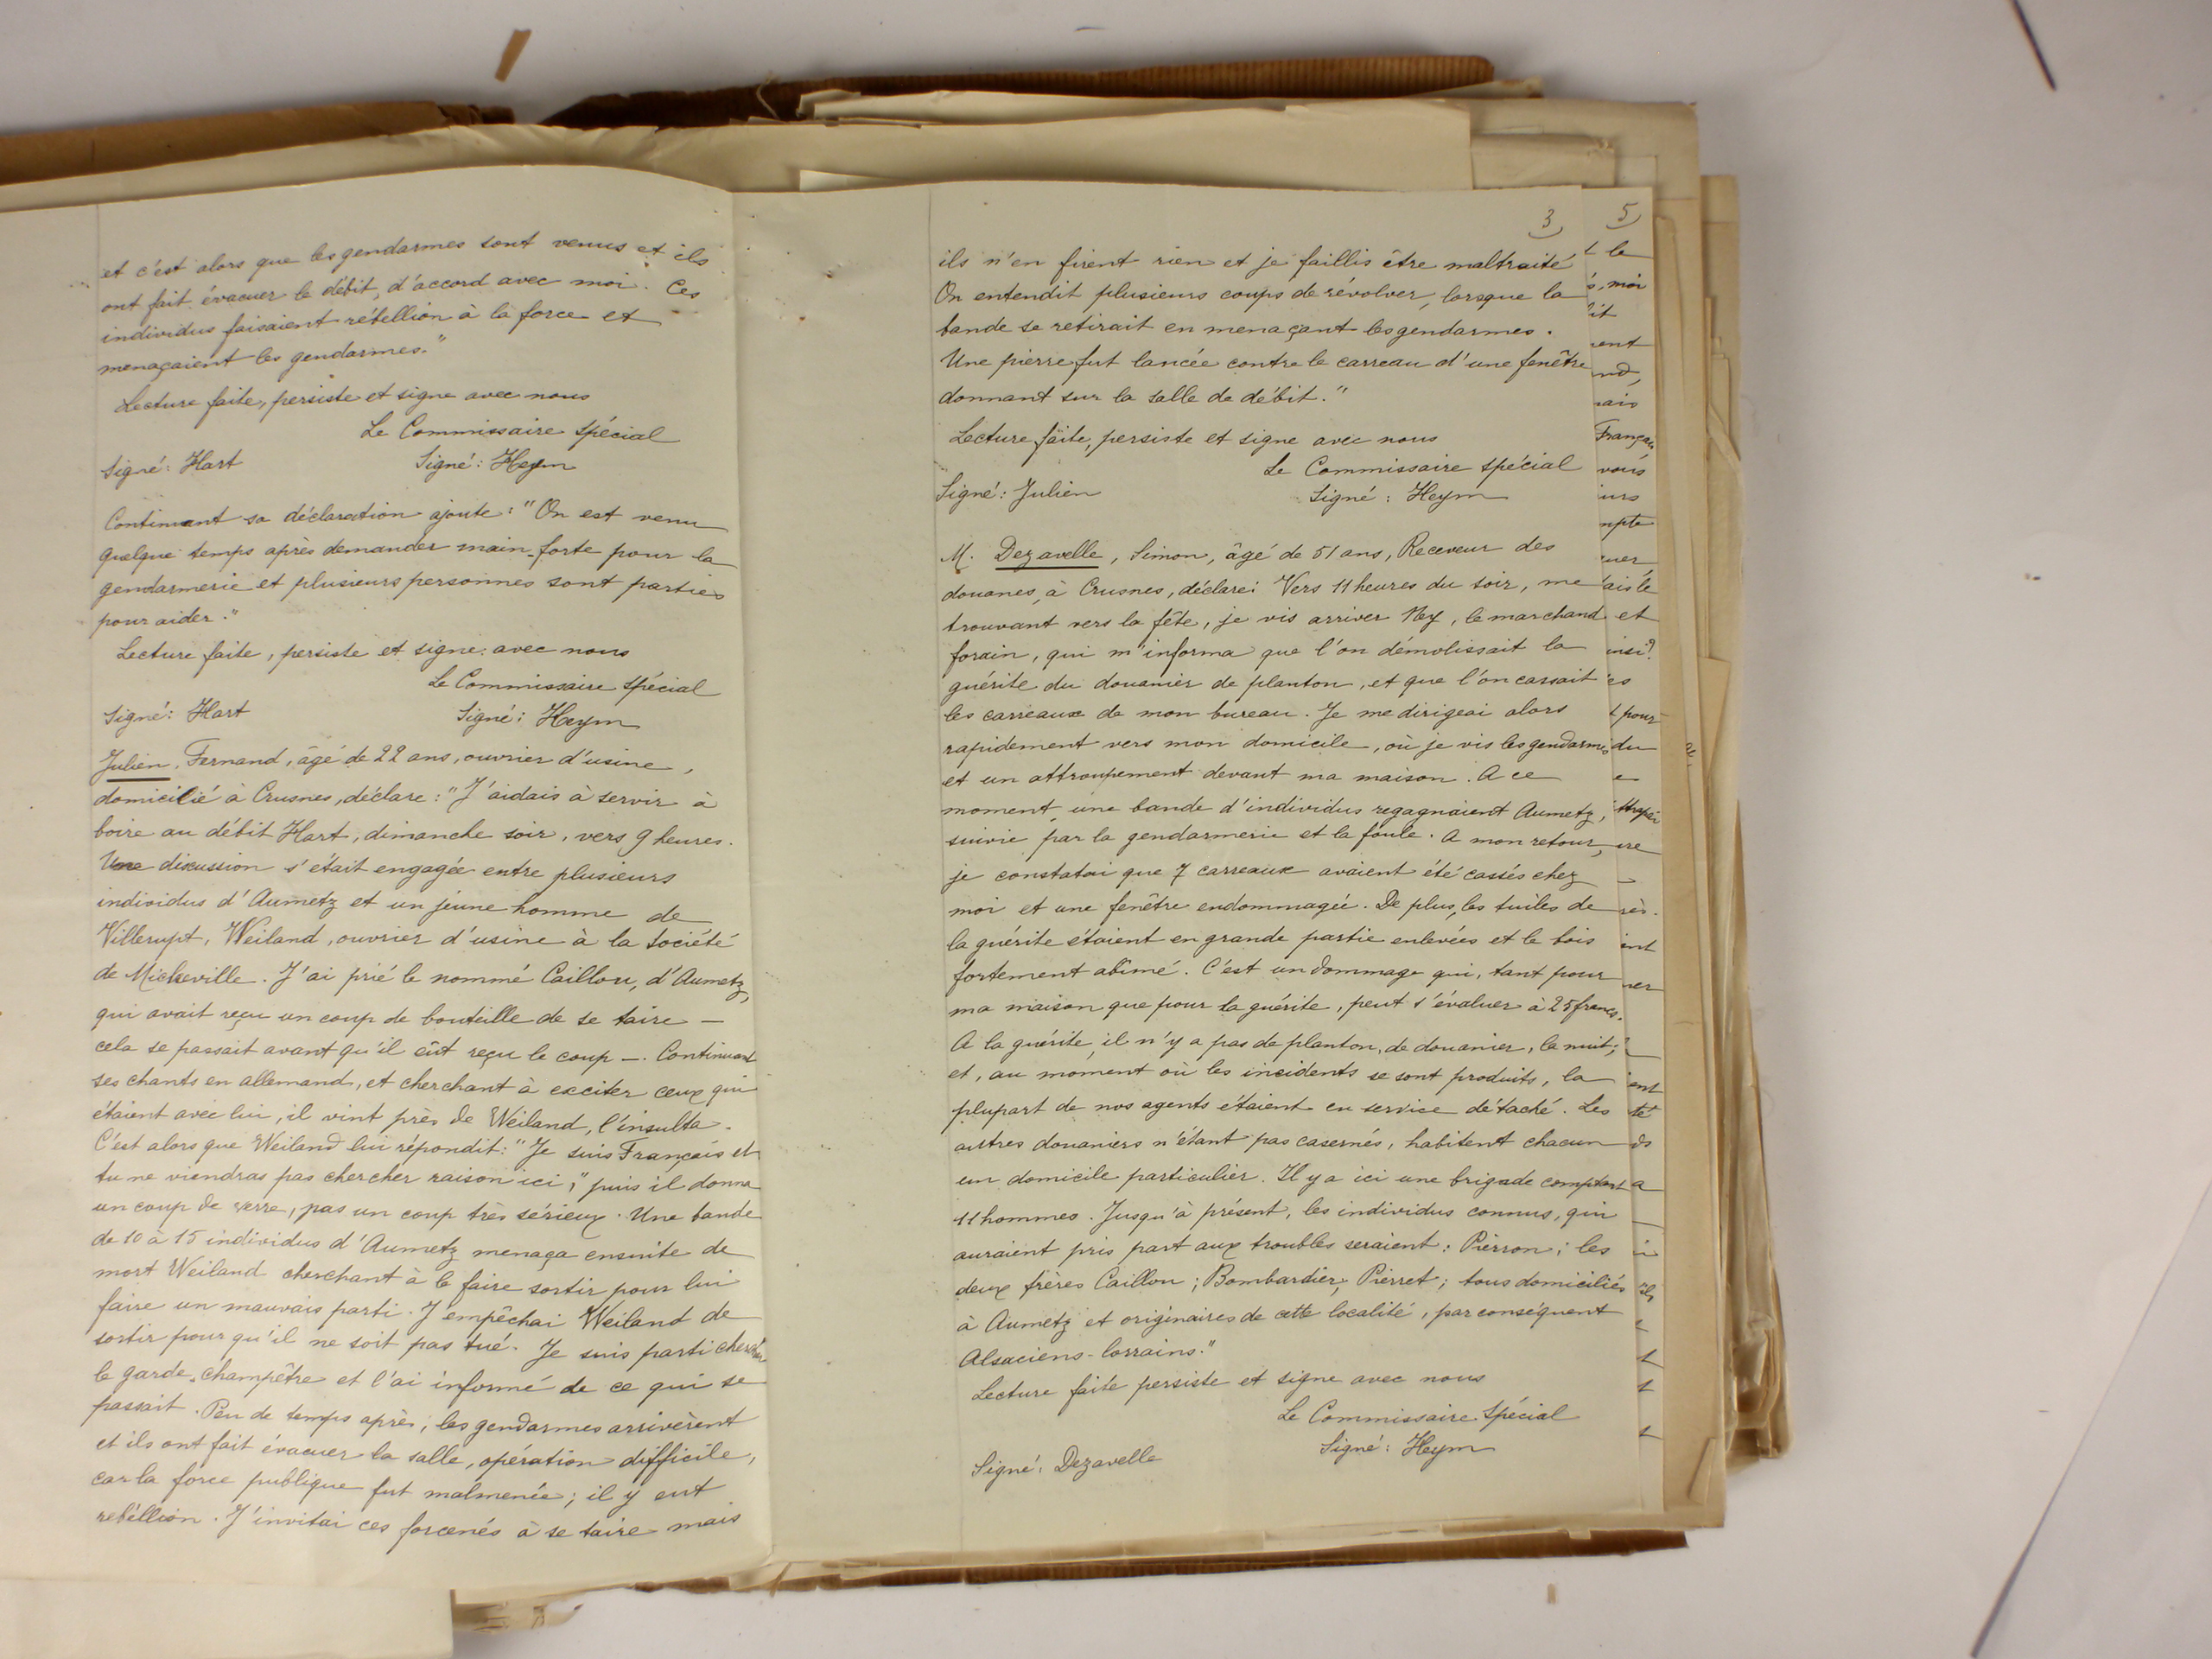 et c'est alors que les gendarmes sont venus et ils
ont fait évacuer le débit, d'accord avec moi. Ces
individus faisaient rébellion à la force et
menaçaient les gendarmes."
Lecture faite, persiste et signe avec nous
Le Commissaire spécial
Signé: Hart Signé: Heym
Continuant sa déclaration ajoute: "On est venu
quelque temps après demander main-forte pour la
gendarmerie et plusieurs personnes sont parties
pour aider."
Lecture faite, persiste et signe avec nous
Le Commissaire spécial
Signé: Hart Signé: Heym
Julien, Fernand, âgé de 22 ans, ouvrier d'usine,
domicilié à Crusnes, déclare: "J'aidais à servir à
boire au débit Hart, dimanche soir, vers 9 heures.
Une discussion s'était engagée entre plusieurs
individus d'Aumetz et un jeune homme de
Villerupt, Weiland, ouvrier d'usine à la Société
de Micheville. J'ai prié le nommé Caillou, d'Aumetz,
qui avait reçu un coup de bouteille de se taire —
cela se passait avant qu'il eût reçu le coup —. Continuant
ses chants en allemand, et cherchant à exciter ceux qui
étaient avec lui, il vint près de Weiland, l'insulta.
C'est alors que Weiland lui répondit: "Je suis Français et
tu ne viendras pas chercher raison ici", puis il donna
un coup de verre, pas un coup très sérieux. Une bande
de 10 à 15 individus d'Aumetz menaça ensuite de
mort Weiland cherchant à le faire sortir pour lui
faire un mauvais parti. J'empêchai Weiland de
sortir pour qu'il ne soit pas tué. Je suis parti chercher
le garde-champêtre et l'ai informé de ce qui se
passait. Peu de temps après, les gendarmes arrivèrent
et ils ont fait évacuer la salle, opération difficile,
car la force publique fut malmenée; il y eut
rebéllion. J'invitai ces forcenés à se taire mais
3
ils n'en firent rien et je faillis être maltraité
On entendit plusieurs coups de révolver, lorsque la
bande se retirait en menaçant les gendarmes.
Une pierre fut lancée contre le carreau d'une fenêtre
donnant sur la salle de débit."
Lecture faite, persiste et signe avec nous
Le Commissaire spécial
Signé: Julien Signé: Heym
M. Dezavelle, Simon, âgé de 51 ans, Receveur des
douanes, à Crusnes, déclare: Vers 11 heures du soir, me
trouvant vers la fête, je vis arriver Ney, le marchand
forain, qui m'informa que l'on démolissait la
guérite du douanier de planton, et que l'on cassait
les carreaux de mon bureau. Je me dirigeai alors
rapidement vers mon domicile, où je vis les gendarmes
et un attroupement devant ma maison. A ce
moment, une bande d'individus regagnaient Aumetz,
suivie par la gendarmerie et la foule. A mon retour,
je constatai que 7 carreaux avaient été cassés chez
moi et une fenêtre endommagée. De plus, les tuiles de
la guérite étaient en grande partie enlevées et le bois
fortement abîmé. C'est un dommage qui, tant pour
ma maison que pour la guérite, peut s'évaluer à 25 francs.
A la guérite, il n'y a pas de planton, de douanier, la nuit;
et, au moment où les incidents se sont produits, la
plupart de nos agents étaient en service détaché. Les
autres douaniers n'étant pas casernés, habitent chacun
un domicile particulier. Il y a ici une brigade comptant
11 hommes. Jusqu'à présent, les individus connus, qui
auraient pris part aux troubles seraient: Pierron; les
deux frères Caillou; Bombardier, Pierret; tous domiciliés
à Aumetz et originaires de cette localité, par conséquent
Alsaciens-lorrains."
Lecture faite persiste et signe avec nous
Le Commissaire Spécial
Signé: Dezavelle Signé: Heym
5
le
moi
Français
et
pour
du